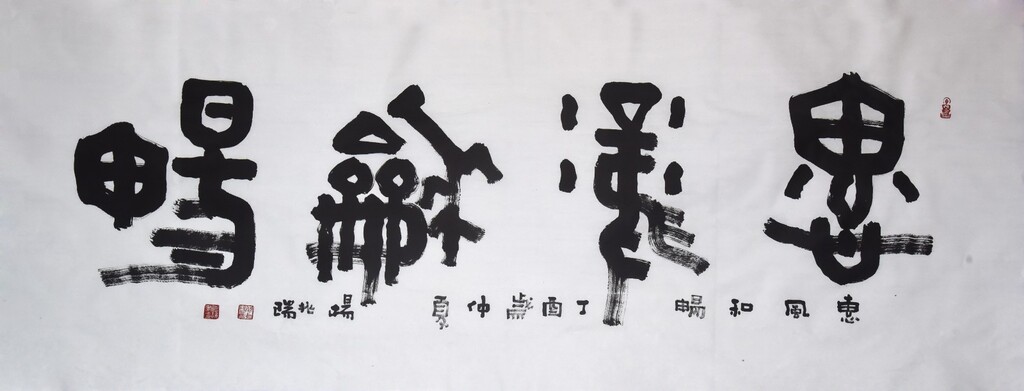 惠風龢暢
惠風和暢 丁酉歲仲夏 楊兆瑞